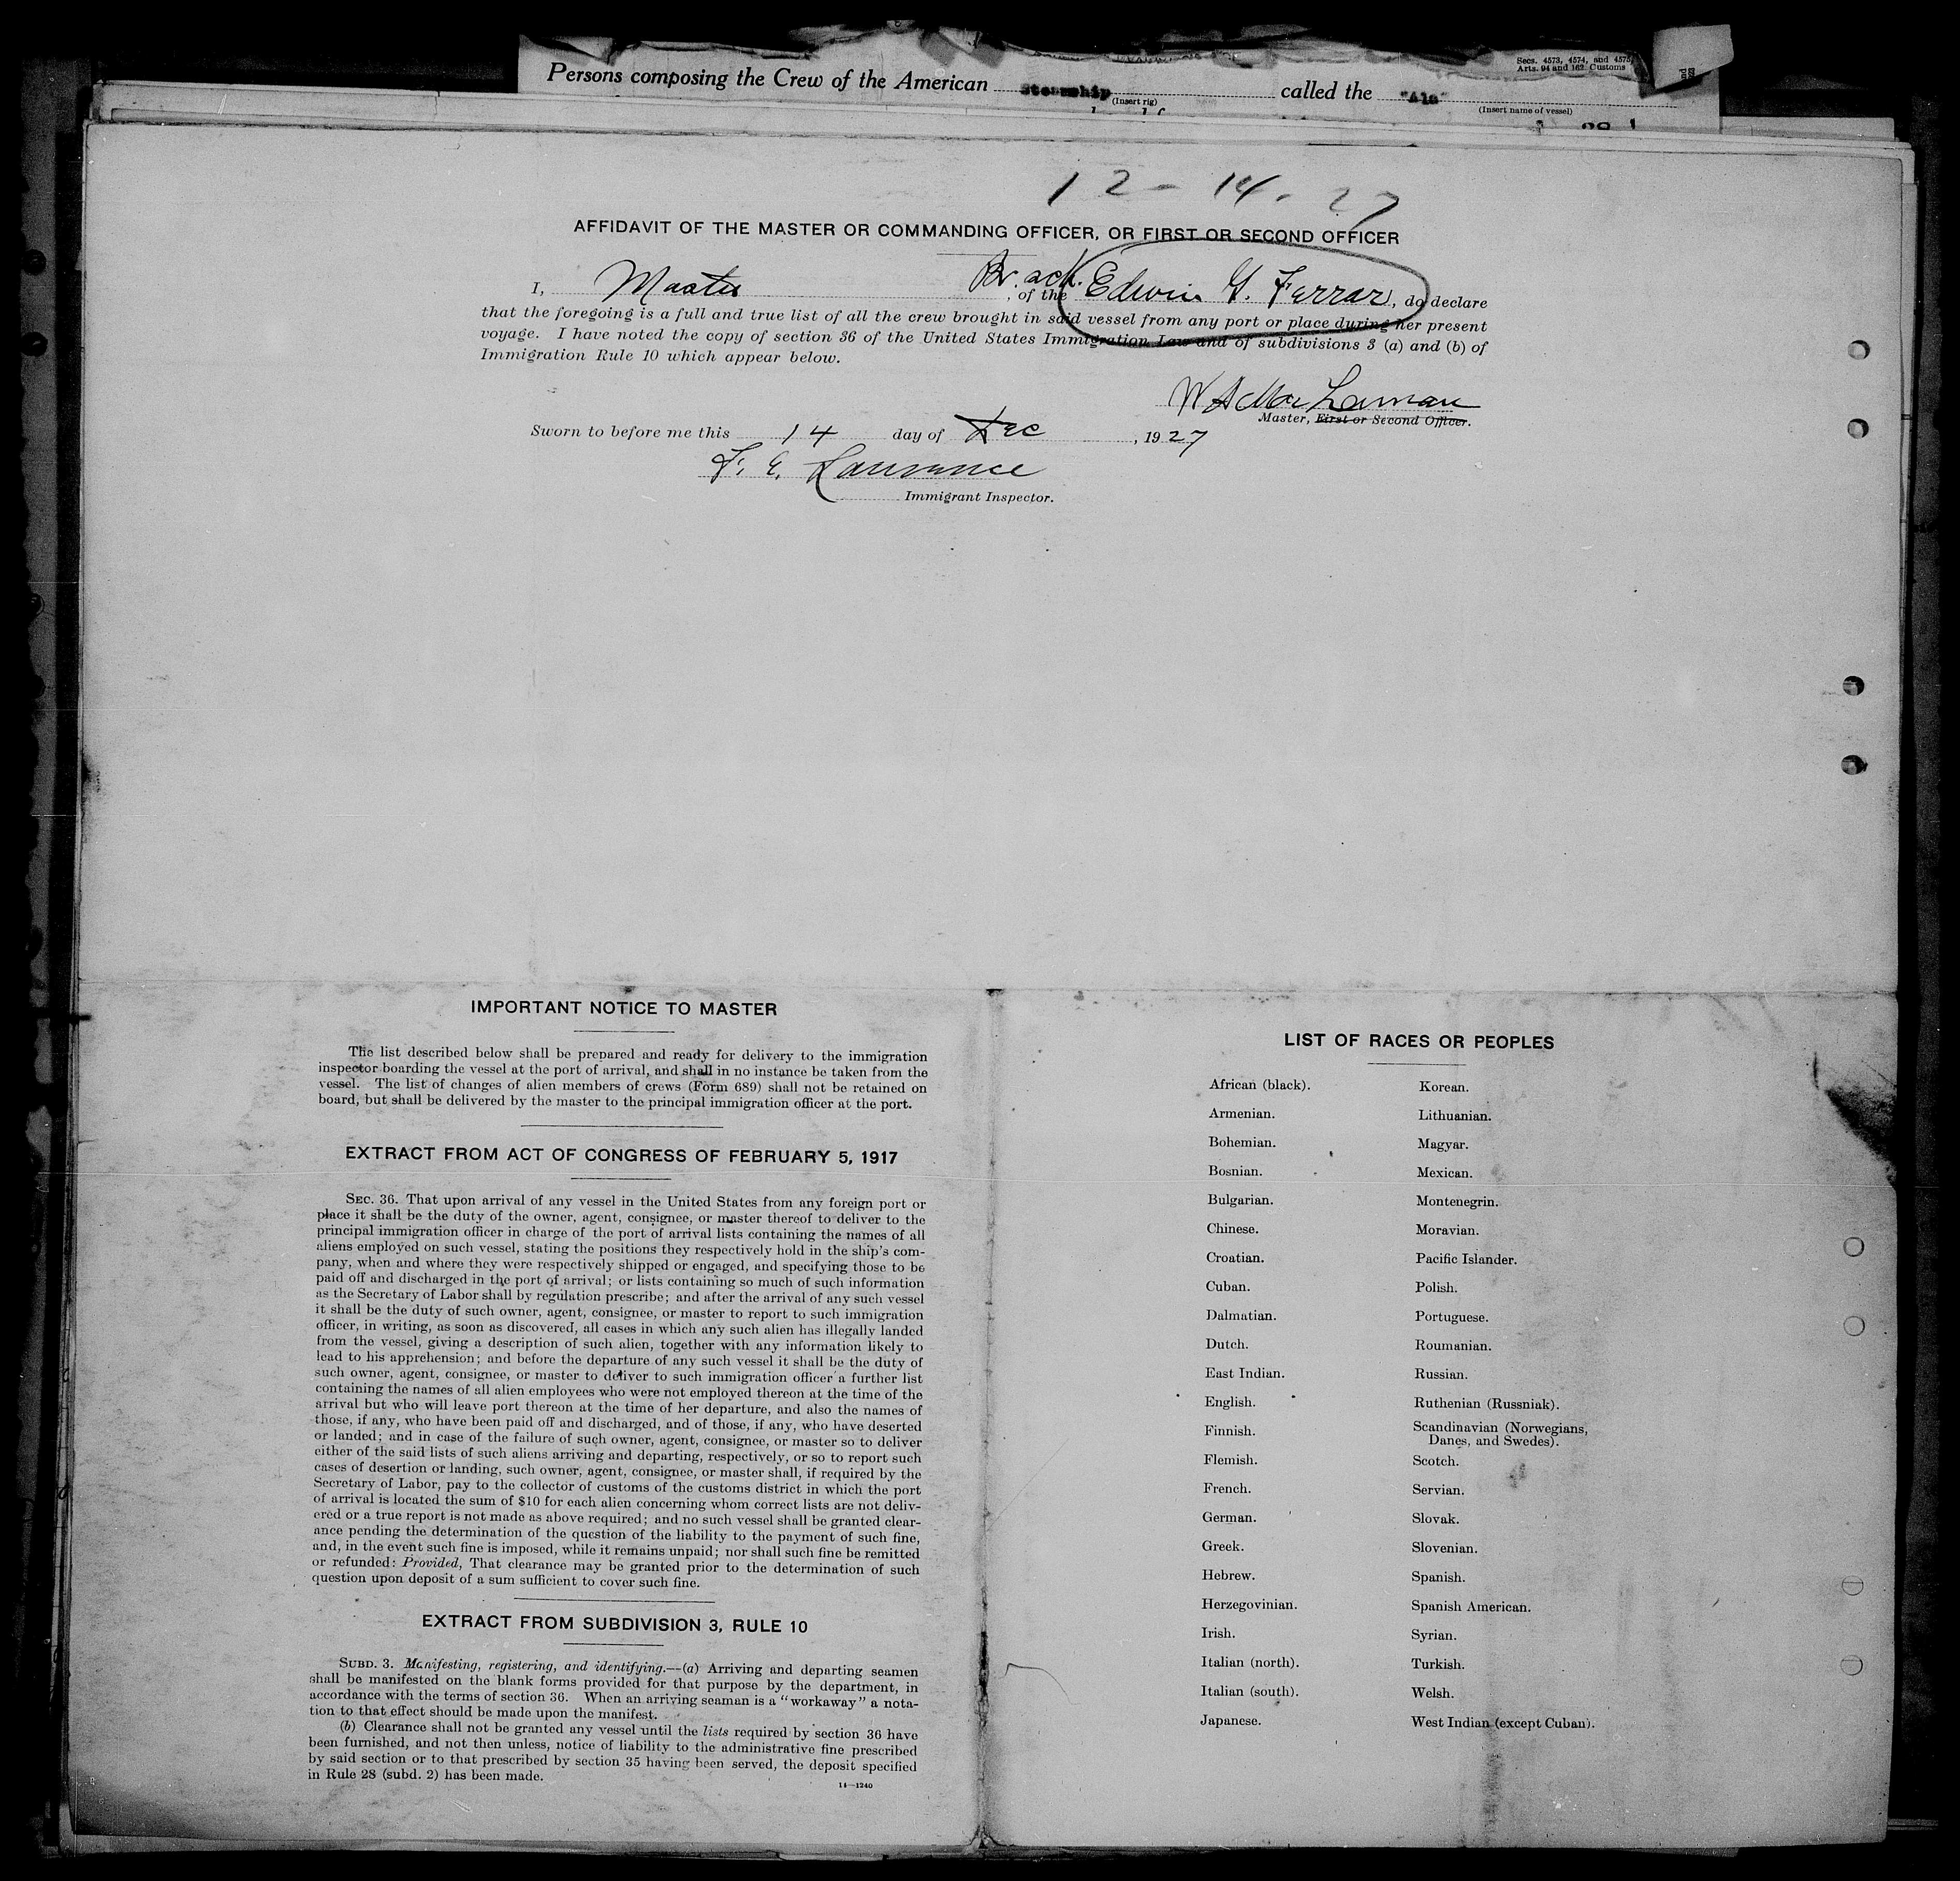 Secs. 4573, 4574, and 4575,
Arts. 94 and 162 Customs
Persons composing the Crew of the American Steamship called the "Ala"
(Insert rig) (Insert name of vessel)
12-14-27
AFFIDAVIT OF THE MASTER OR COMMANDING OFFICER, OR FIRST OR SECOND OFFICER
I, Master, of the Br. Edwin G. Farrar, do declare
that the foregoing is a full and true list of all the crew brought in said vessel from any port or place during her present
voyage. I have noted the copy of section 36 of the United States Immigration Law and of subdivisions 3 (a) and (b) of
Immigration Rule 10 which appear below.
Master, First or Second Officer.
Sworn to before me this 14 day of Dec, 1927
Immigrant Inspector.
IMPORTANT NOTICE TO MASTER
The list described below shall be prepared and ready for delivery to the immigration
inspector boarding the vessel at the port of arrival, and shall in no instance be taken from the
vessel. The list of changes of alien members of crews (Form 689) shall not be retained on
board, but shall be delivered by the master to the principal immigration officer at the port.
EXTRACT FROM ACT OF CONGRESS OF FEBRUARY 5, 1917
SEC. 36. That upon arrival of any vessel in the United States from any foreign port or
place it shall be the duty of the owner, agent, consignee, or master thereof to deliver to the
principal immigration officer in charge of the port of arrival lists containing the names of all
aliens employed on such vessel, stating the positions they respectively hold in the ship's com-
pany, when and where they were respectively shipped or engaged, and specifying those to be
paid off and discharged in the port of arrival; or lists containing so much of such information
as the Secretary of Labor shall by regulation prescribe; and after the arrival of any such vessel
it shall be the duty of such owner, agent, consignee, or master to report to such immigration
officer, in writing, as soon as discovered, all cases in which any such alien has illegally landed
from the vessel, giving a description of such alien, together with any information likely to
lead to his apprehension; and before the departure of any such vessel it shall be the duty of
such owner, agent, consignee, or master to deliver to such immigration officer a further list
containing the names of all alien employees who were not employed thereon at the time of the
arrival but who will leave port thereon at the time of her departure, and also the names of
those, if any, who have been paid off and discharged, and of those, if any, who have deserted
or landed; and in case of the failure of such owner, agent, consignee, or master so to deliver
either of the said lists of such aliens arriving and departing, respectively, or so to report such
cases of desertion or landing, such owner, agent, consignee, or master shall, if required by the
Secretary of Labor, pay to the collector of customs of the customs district in which the port
of arrival is located the sum of $10 for each alien concerning whom correct lists are not deliv-
ered or a true report is not made as above required; and no such vessel shall be granted clear-
ance pending the determination of the question of the liability to the payment of such fine,
and, in the event such fine is imposed, while it remains unpaid; nor shall such fine be remitted
or refunded: Provided, That clearance may be granted prior to the determination of such
question upon deposit of a sum sufficient to cover such fine.
EXTRACT FROM SUBDIVISION 3, RULE 10
SUBD. 3. Manifesting, registering, and identifying.—(a) Arriving and departing seamen
shall be manifested on the blank forms provided for that purpose by the department, in
accordance with the terms of section 36. When an arriving seaman is a "workaway" a nota-
tion to that effect should be made upon the manifest.
(b) Clearance shall not be granted any vessel until the lists required by section 36 have
been furnished, and not then unless, notice of liability to the administrative fine prescribed
by said section or to that prescribed by section 35 having been served, the deposit specified
in Rule 28 (subd. 2) has been made.
14—1240
LIST OF RACES OR PEOPLES
African (black).
Armenian.
Bohemian.
Bosnian.
Bulgarian.
Chinese.
Croatian.
Cuban.
Dalmatian.
Dutch.
East Indian.
English.
Finnish.
Flemish.
French.
German.
Greek.
Hebrew.
Herzegovinian.
Irish.
Italian (north).
Italian (south).
Japanese.
Korean.
Lithuanian.
Magyar.
Mexican.
Montenegrin.
Moravian.
Pacific Islander.
Polish.
Portuguese.
Roumanian.
Russian.
Ruthenian (Russniak).
Scandinavian (Norwegians,
Danes, and Swedes).
Scotch.
Servian.
Slovak.
Slovenian.
Spanish.
Spanish American.
Syrian.
Turkish.
Welsh.
West Indian (except Cuban).